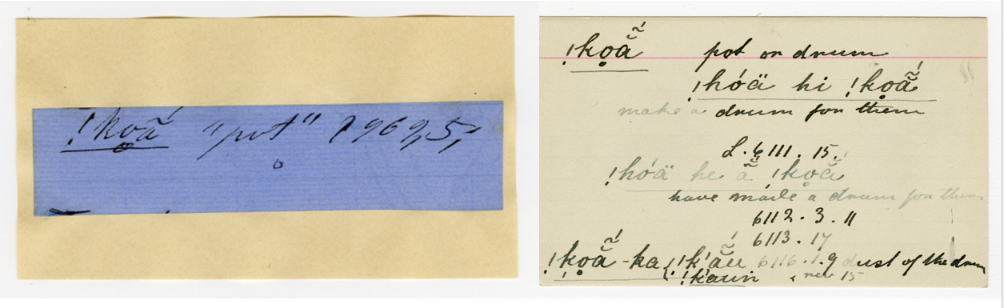 !kọā̃́ "pot" 1969,5,
!kọā̰̃́ pot or drum
!hóä hi !kọā̰̃́
make a drum for them
L. 6111. 15.
!hóä he ã !kọā̰̃́
have made a drum for them
6112. 3. 11
6113. 17
!kọā̰̃́-ka 6116. 1. 9 dust of the drum
!kaun rev 15